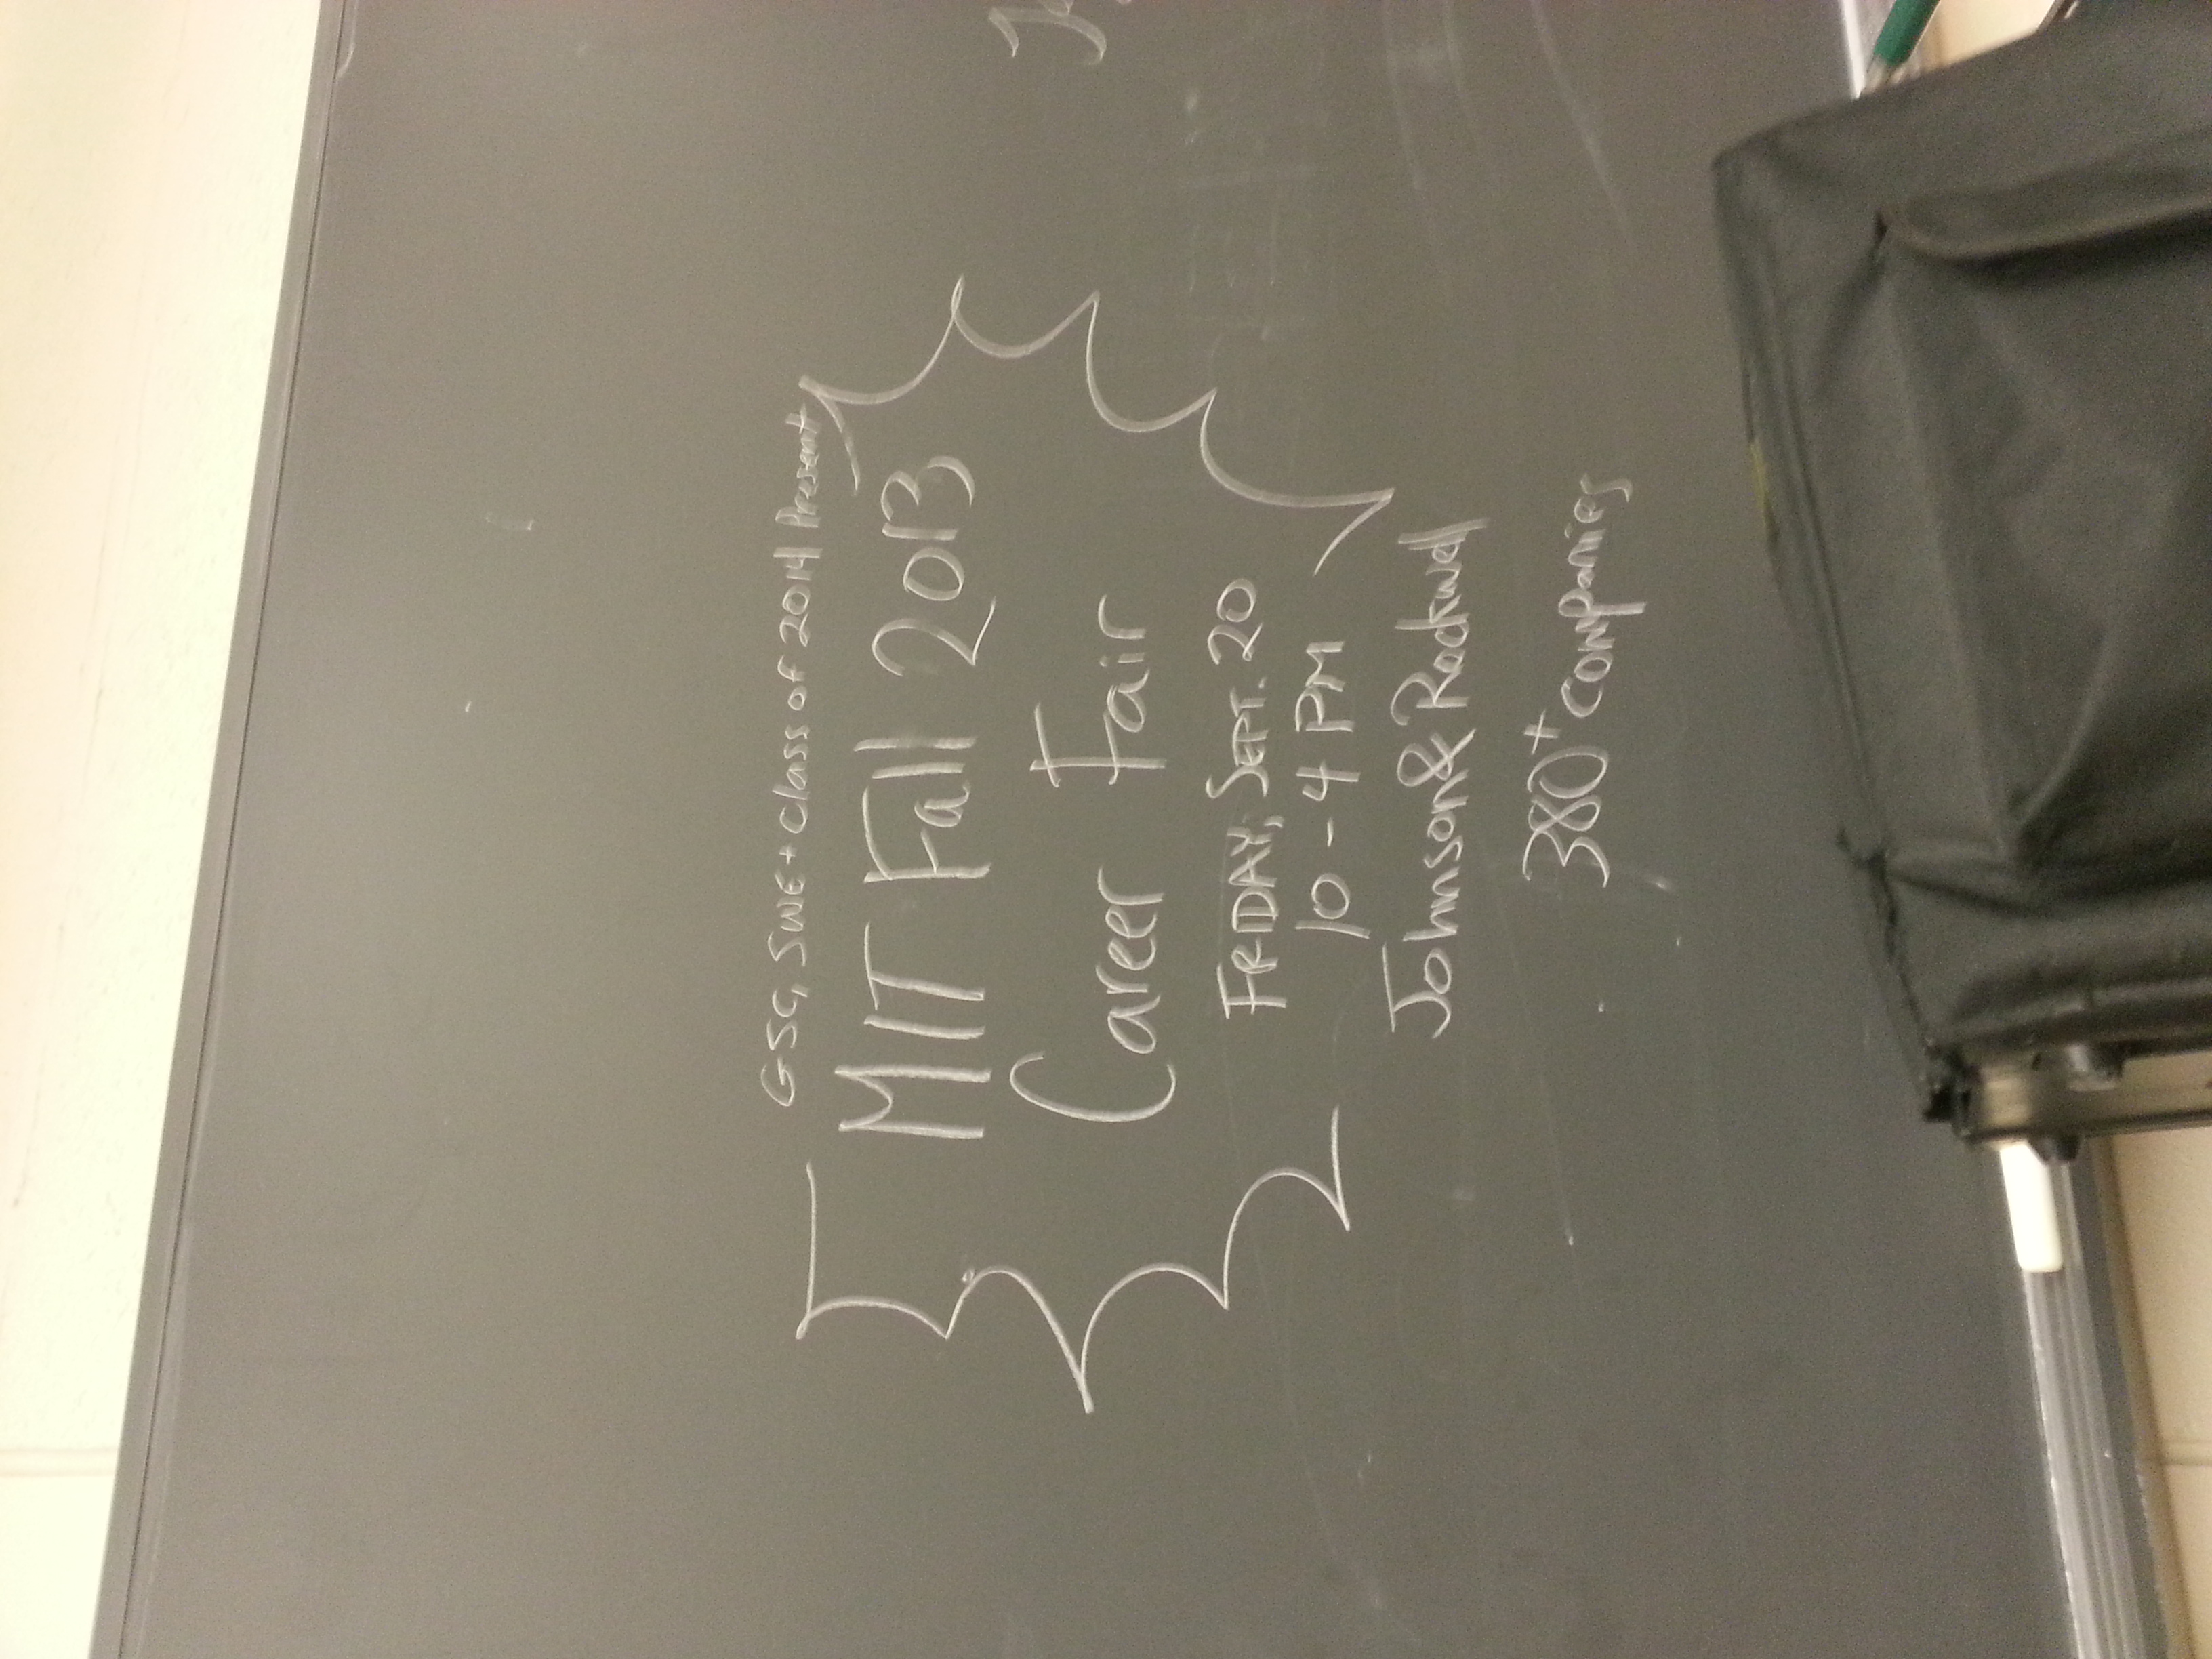 GSC, SWE + Class of 2014 Present
MIT Fall 2013
Career Fair
FRIDAY, SEPT. 20
10 - 4 PM
Johnson & Rockwell
380+ companies